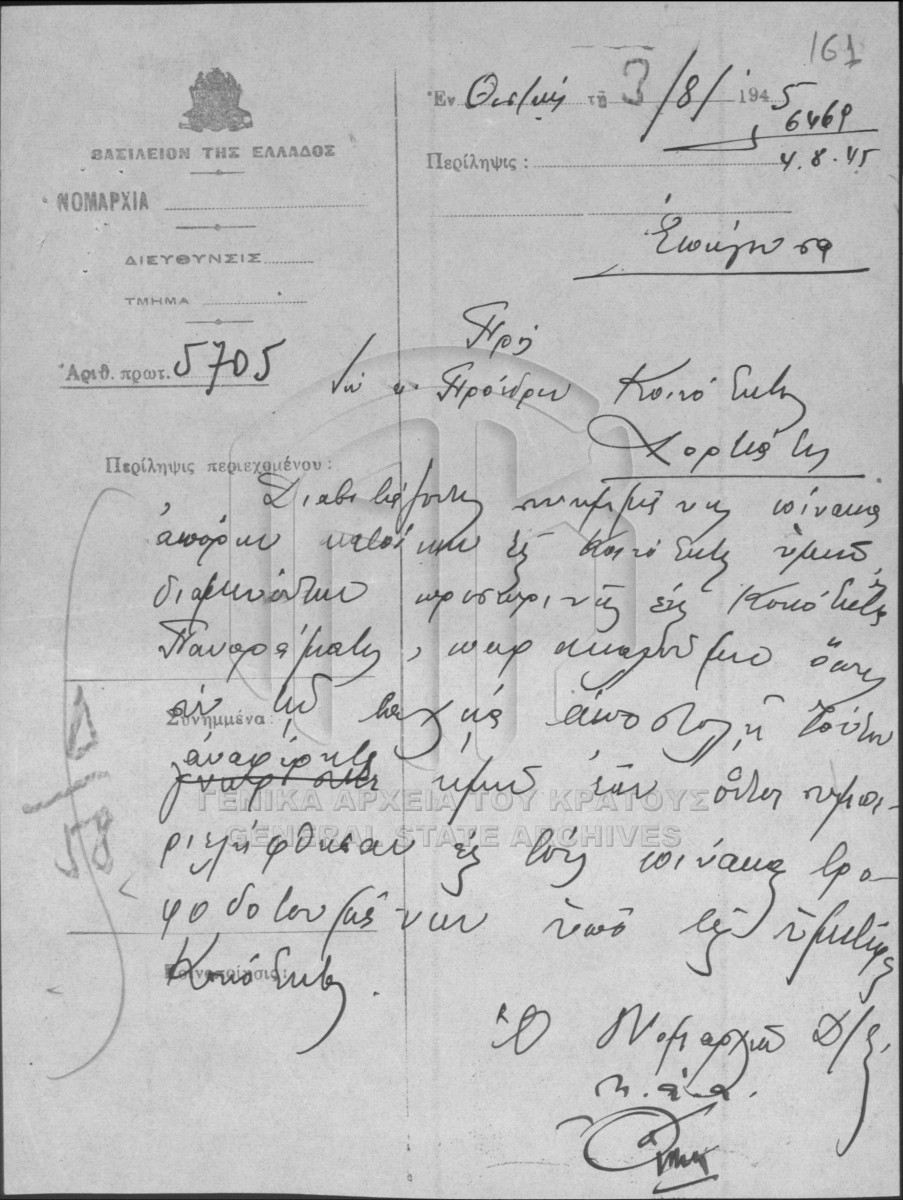 161
ΒΑΣΙΛΕΙΟΝ ΤΗΣ ΕΛΛΑΔΟΣ
ΝΟΜΑΡΧΙΑ
ΔΙΕΥΘΥΝΣΙΣ
ΤΜΗΜΑ
Ἀριθ. πρωτ. 5705
Ἐν Θεσ)νίκῃ τῇ 3/8/1945
6469
4.8.45
Περίληψις :
Ἐπείγουσα
Πρὸς
Τὸν κ. Πρόεδρον Κοινότητος
Χορτιάτη
Περίληψις περιεχομένου :
Διαβιβάζοντες συνημμένως πίνακα
ἀπόρων κατοίκων τῆς Κοινότητος ὑμῶν
διαμενόντων προσωρινῶς εἰς Κοινότητα
Πανοράματος, παρακαλοῦμεν ὅπως
Συνημμένα :
ἀναφέρητε
ἡμῖν ἐὰν οὗτοι συμπε-
ριελήφθησαν εἰς τοὺς πίνακας τρο-
φοδοτουμένων ὑπὸ τῆς ὑμετέρας
Κοινοποίησις :
Κοινότητος.
Ὁ Νομαρχῶν Δ/τὴς
κ.ἀ.α.
58
ΓΕΝΙΚΑ ΑΡΧΕΙΑ ΤΟΥ ΚΡΑΤΟΥΣ
GENERAL STATE ARCHIVES